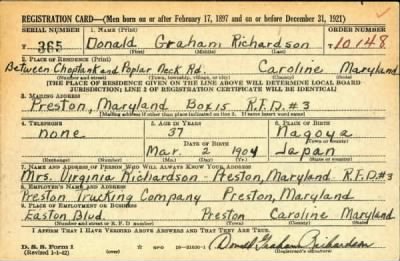 REGISTRATION CARD—(Men born on or after February 17, 1897 and on or before December 31, 1921)
SERIAL NUMBER 1. NAME (Print) ORDER NUMBER
T 365 Donald Graham Richardson T10,148
(First) (Middle) (Last)
2. PLACE OF RESIDENCE (Print)
Between Choptank and Poplar Neck Rd. Caroline Maryland
(Number and street) (Town, township, village, or city) (County) (State)
[THE PLACE OF RESIDENCE GIVEN ON THE LINE ABOVE WILL DETERMINE LOCAL BOARD
JURISDICTION; LINE 2 OF REGISTRATION CERTIFICATE WILL BE IDENTICAL]
3. MAILING ADDRESS
Preston, Maryland Box 15 R.F.D. #3
[Mailing address if other than place indicated on line 2. If same insert word same]
4. TELEPHONE 5. AGE IN YEARS 6. PLACE OF BIRTH
none 37 Nagoya
DATE OF BIRTH (Town or county)
Mar. 2 1904 Japan
(Exchange) (Number) (Mo.) (Day) (Yr.) (State or country)
7. NAME AND ADDRESS OF PERSON WHO WILL ALWAYS KNOW YOUR ADDRESS
Mrs. Virginia Richardson - Preston, Maryland R.F.D. #3
8. EMPLOYER'S NAME AND ADDRESS
Preston Trucking Company Preston, Maryland
9. PLACE OF EMPLOYMENT OR BUSINESS
Easton Blvd. Preston Caroline Maryland
(Number and street or R. F. D. number) (Town) (County) (State)
I AFFIRM THAT I HAVE VERIFIED ABOVE ANSWERS AND THAT THEY ARE TRUE.
D. S. S. Form 1
(Revised 1-1-42) GPO 16—21630-1 Donald Graham Richardson
(Registrant's signature)